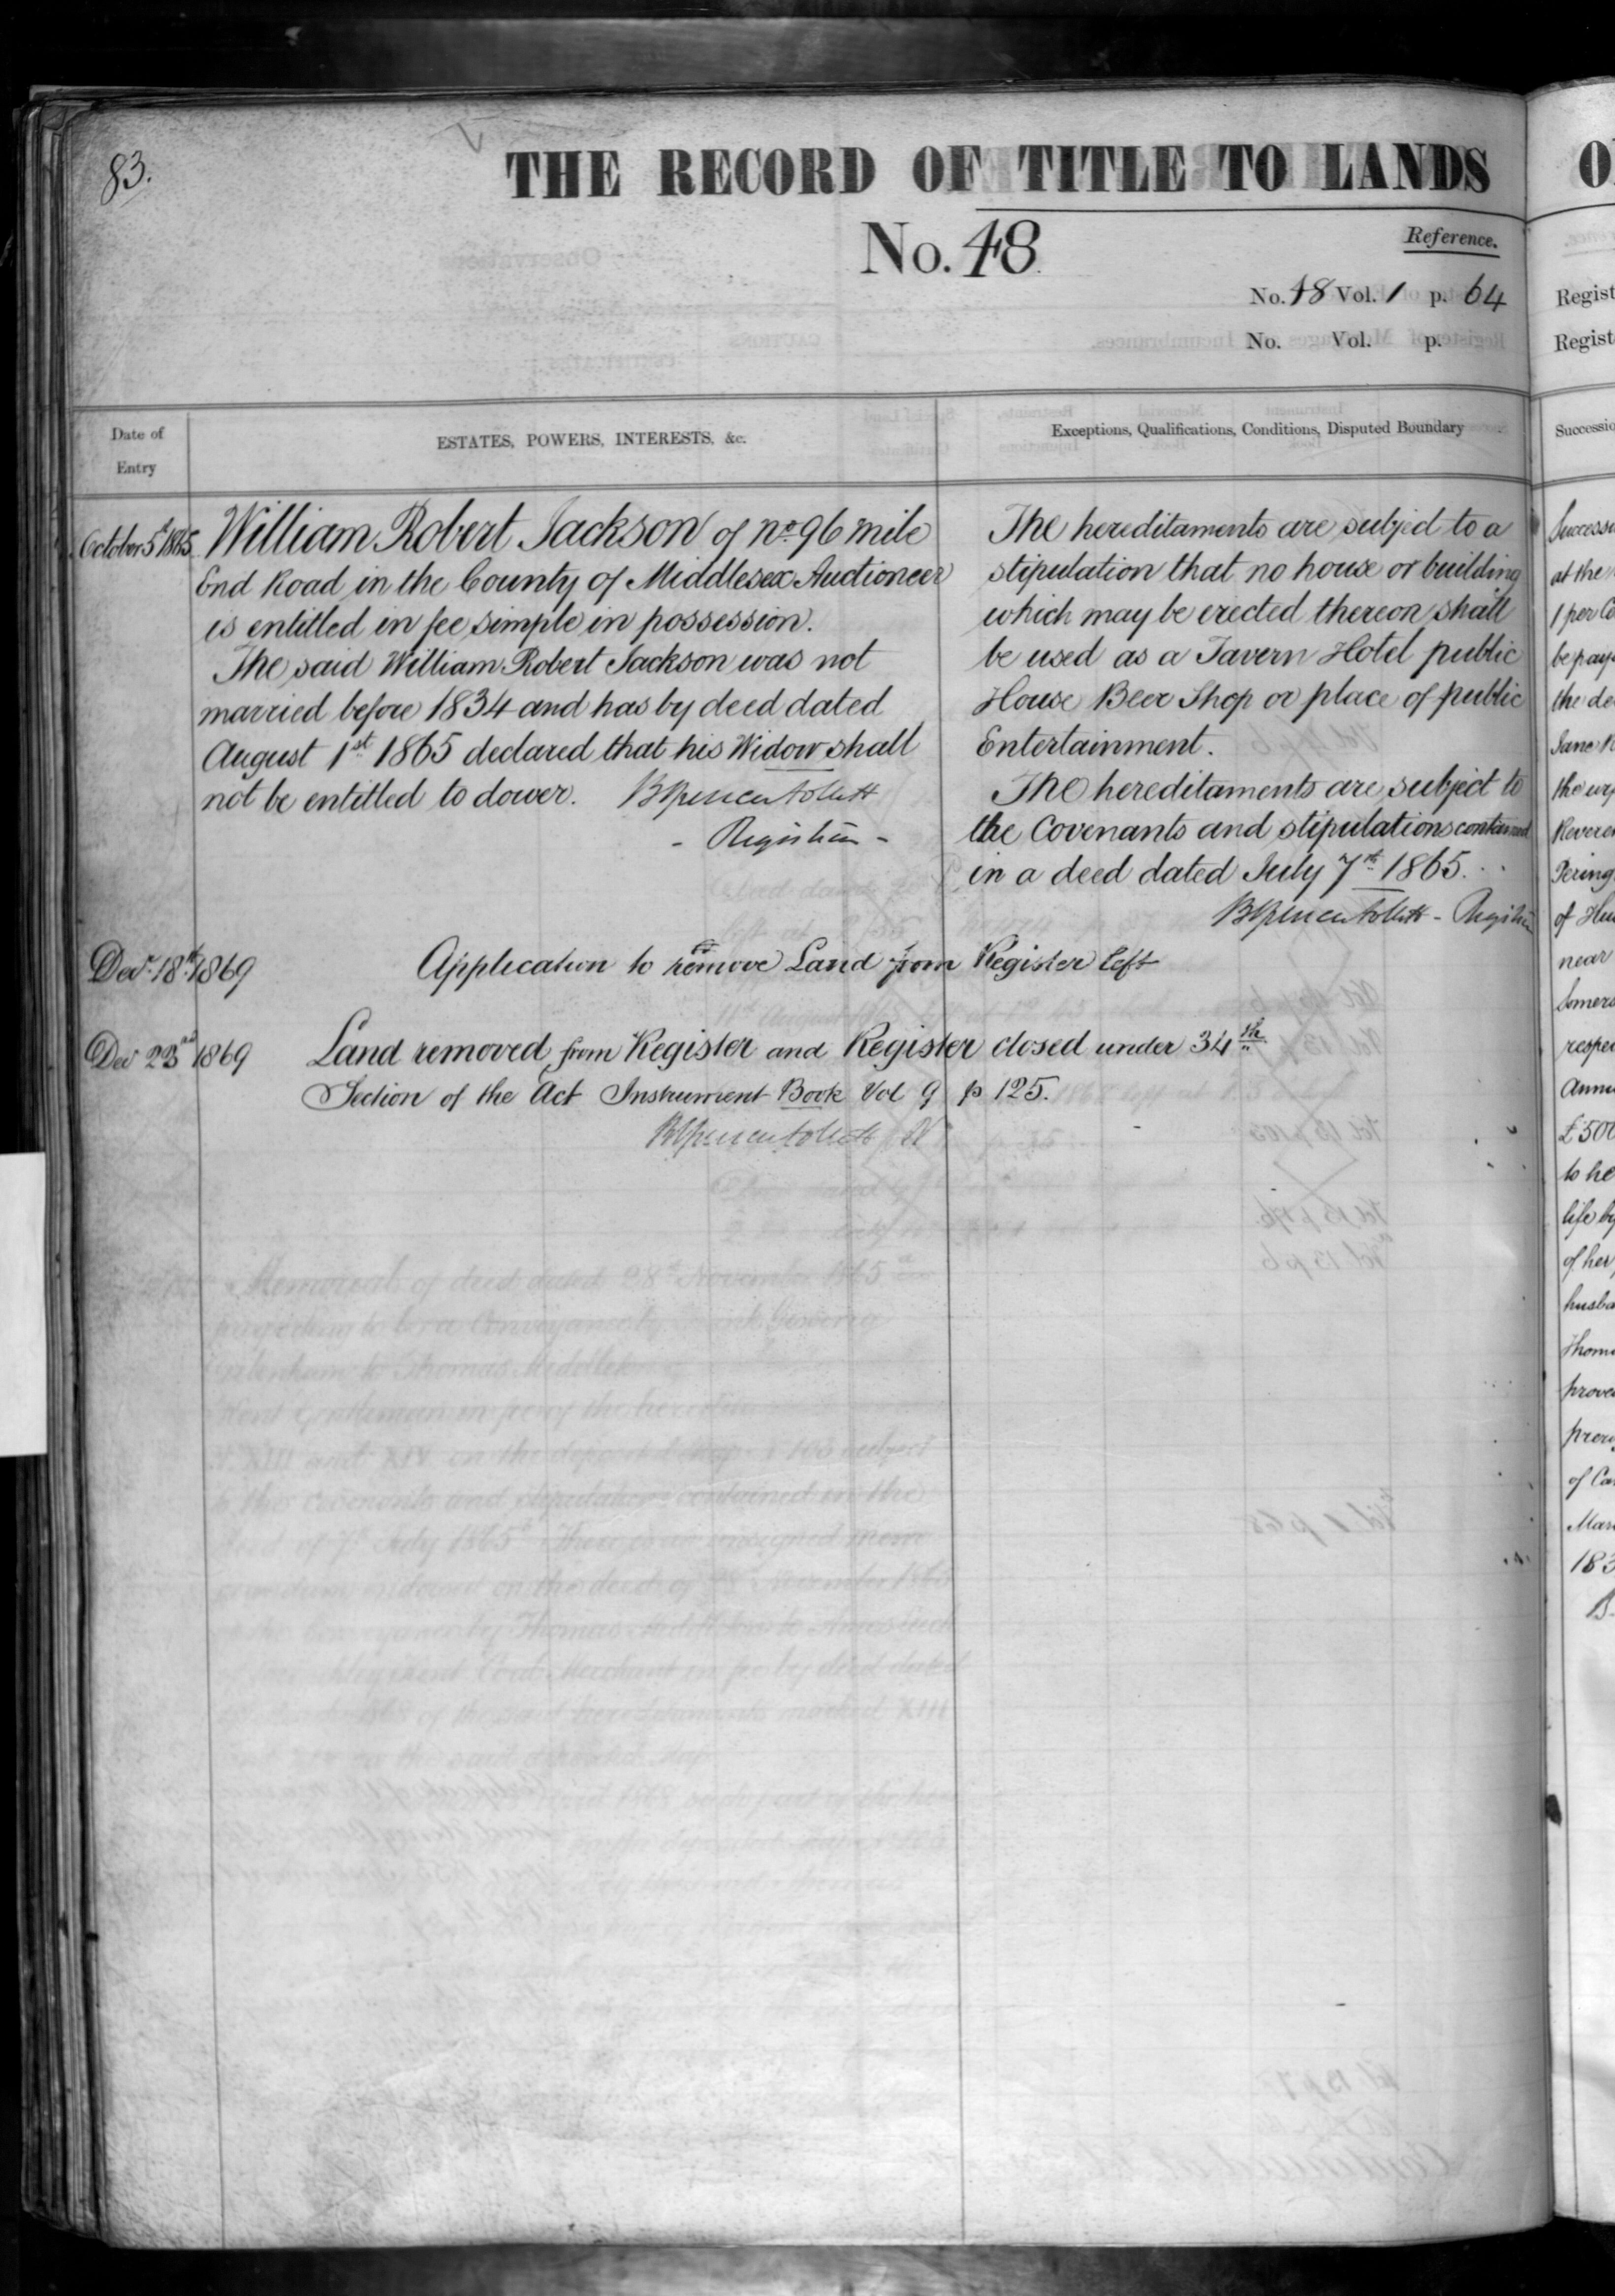 83.
THE RECORD OF TITLE TO LANDS
No. 48
Reference.
No. 48 Vol. 1 p. 64
No. Vol. p.
Date of
Entry
ESTATES, POWERS, INTERESTS, &c.
Exceptions, Qualifications, Conditions, Disputed Boundary
October 5th 1865.
William Robert Jackson of No. 96 Mile
End Road in the County of Middlesex Auctioneer
is entitled in fee simple in possession.
The said William Robert Jackson was not
married before 1834 and has by deed dated
August 1st 1865 declared that his Widow shall
not be entitled to dower. B Spencer Follett
- Registrar -
The hereditaments are subject to a
stipulation that no house or building
which may be erected thereon shall
be used as a Tavern Hotel public
House Beer Shop or place of public
Entertainment.
The hereditaments are subject to
the Covenants and stipulations contained
in a deed dated July 7th 1865.
B Spencer Follett - Registrar
Decr 18th 1869
Application to remove Land from Register left
Dec 23rd 1869
Land removed from Register and Register closed under 34th
Section of the Act Instrument Book Vol 9 p 125.
B Spencer Follett R
O
Regist
Regist
Successio
at the
1 per C
be pay
the de
Jane
the
Revere
Pering
of Hu
near
Somers
respe
Annu
£500
to he
life by
of her
husba
Thom
prove
of Ca
Mar
183
B